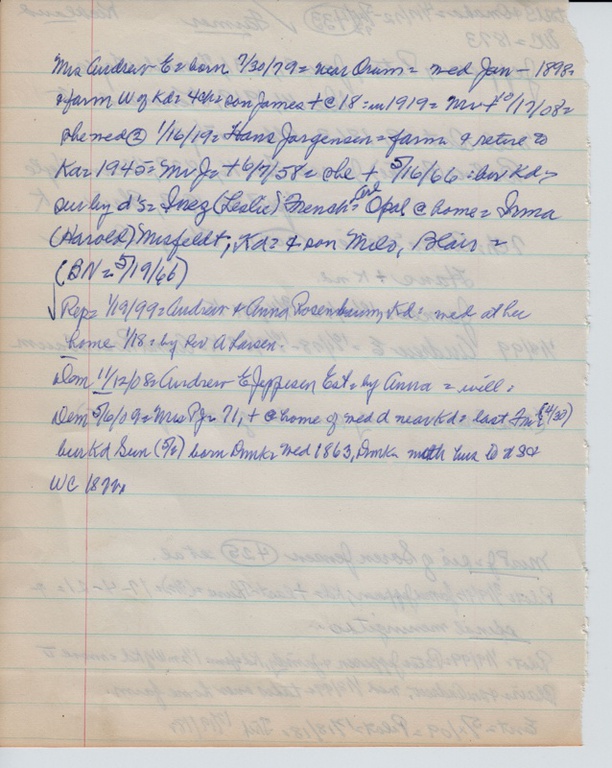 Mrs Andrew E = born 7/30/79 = near Orum = wed Jan - 1898 =
farm W of Kd = 4 ch = son James + @ 18 = in 1919 = Mr + 10/17/08 =
she wed ② 1/16/19 = Hans Jorgensen = farm & retire to
Kd = 1945 = Mr J = + 6/7/58 = she + 5/16/66 = bur Kd =
sur by d's = Inez (Leslie) French = Opal @ home = Irma
(Harold) Misfeldt, Kd = & son Milo, Blair =
(BN = 5/19/66)
√ Rep = 1/19/99 = Andrew & Anna Rosenbaum, Kd = wed at her
home 1/18 = by Rev A Larsen.
Dem 11/12/08 = Andrew E Jeppesen Est = by Anna = will =
Dem 5/6/09 = Mrs PJ = 71, + @ home of wed d near Kd = last (4/30)
bur Kd Sun (5/2) born Dmk = wed 1863, Dmk =
WC 1872